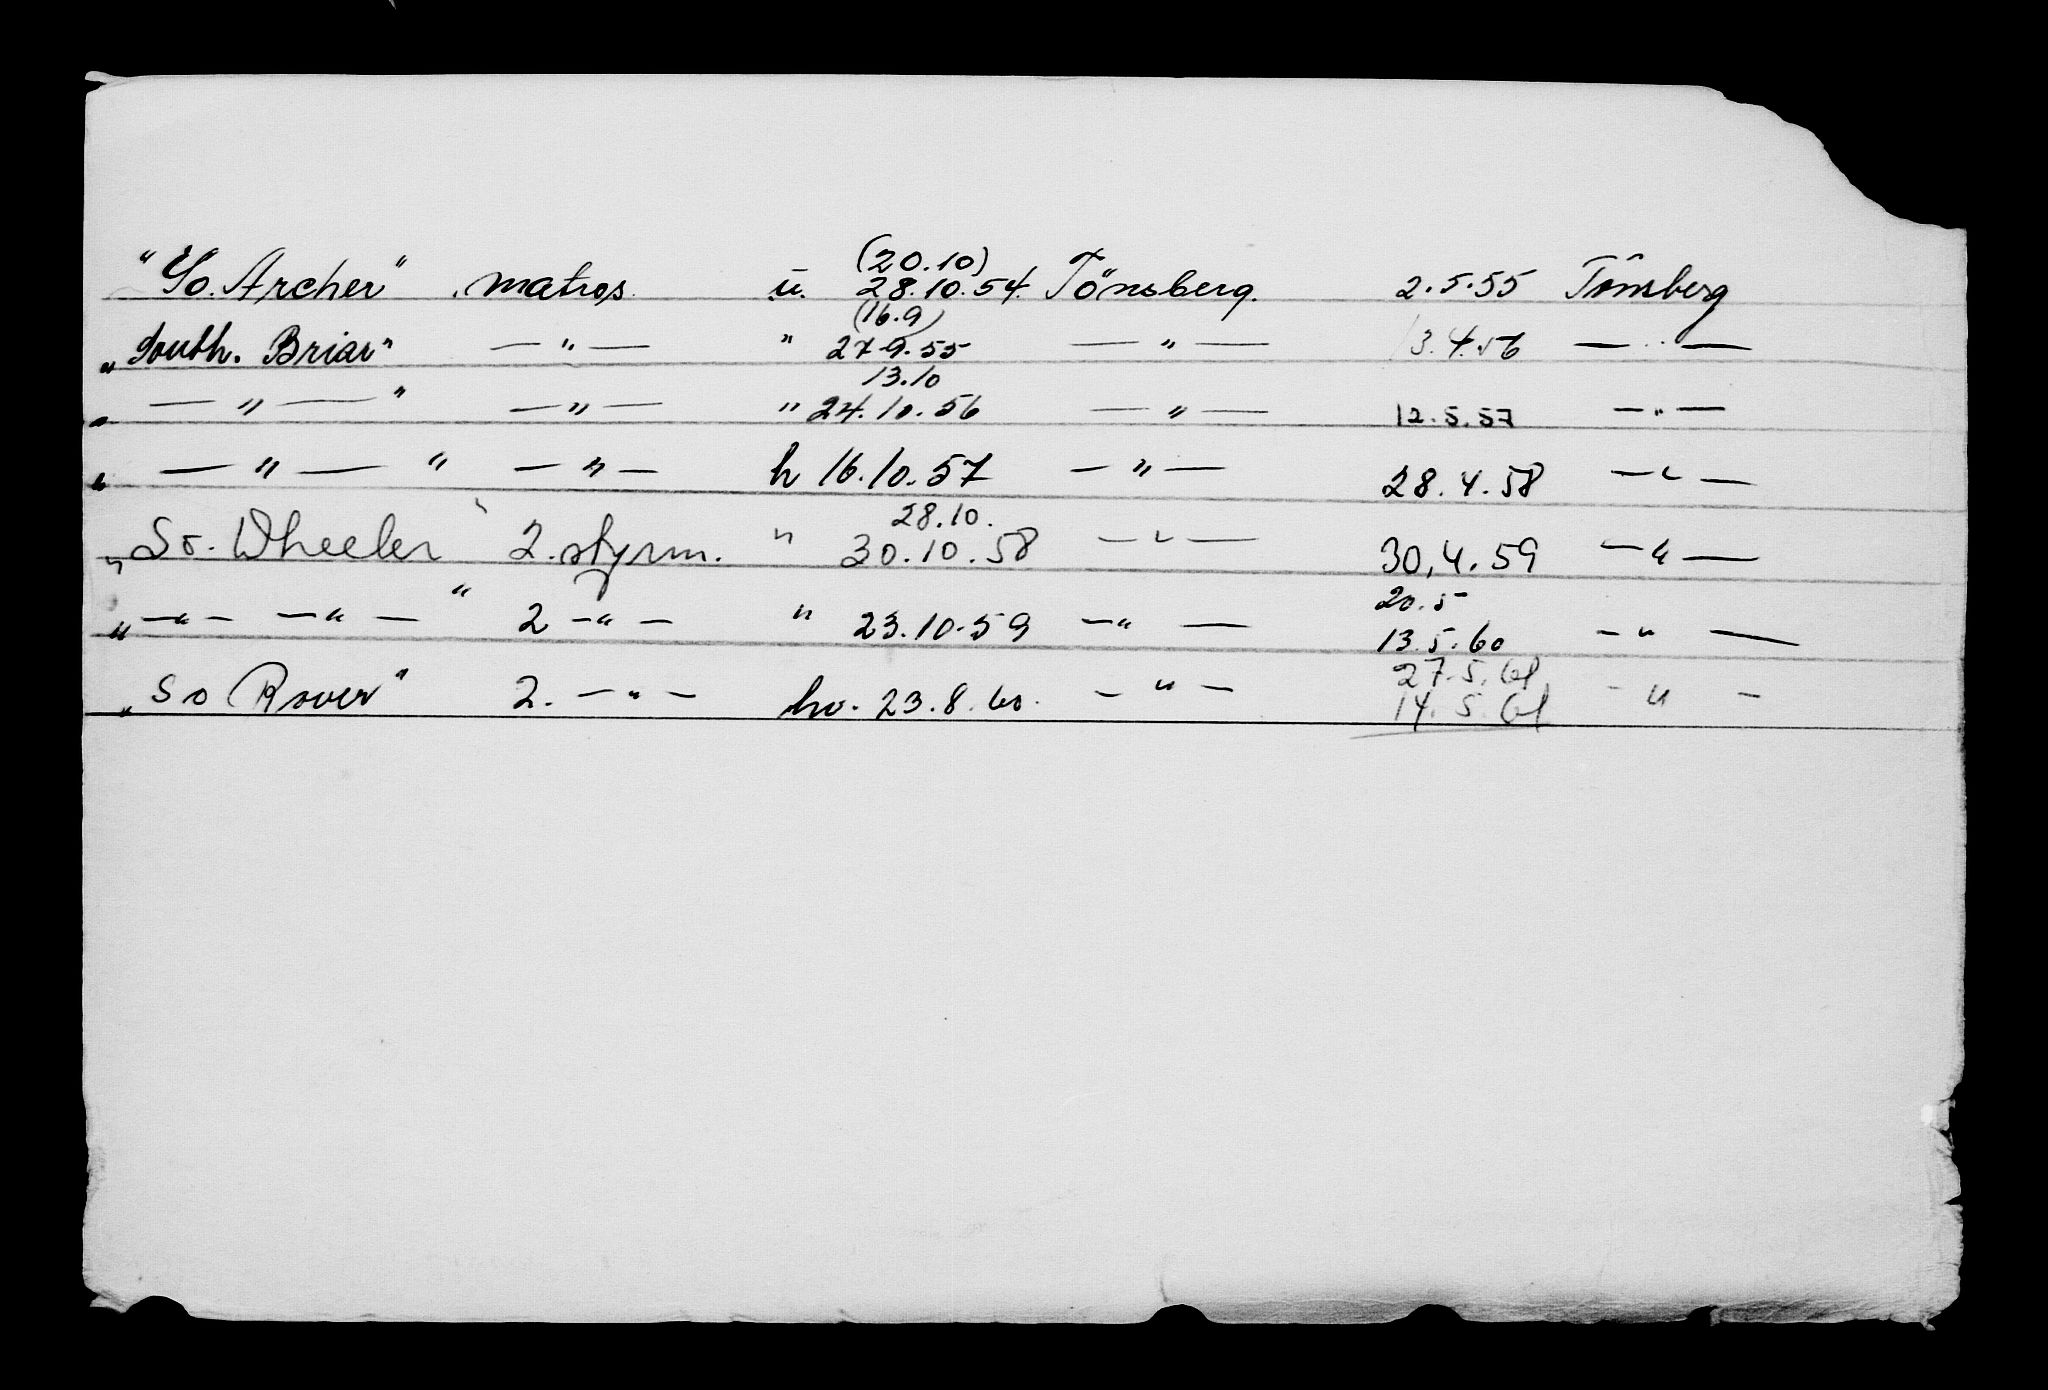 (20.10)
"So. Archer" matros. u. 28.10.54. Tönsberg. 2.5.55 Tönsberg
(16.9)
"South. Briar" — " — " 27.9.55 — " — 13.4.56 — " —
13.10
" — " — " — " — " 24.10.56 — " — 12.5.57 — " —
" — " — " — " — h 16.10.57 — " — 28.4.58 — " —
28.10.
"So. Wheeler" 2. styrm. " 30.10.58 — " — 30.4.59 — " —
20.5
" — " — — " — " 2 — " — " 23.10.59 — " — 13.5.60 — " —
27.5.61
"So Rover" 2. — " — hv. 23.8.60. — " — 14.5.61 — " —